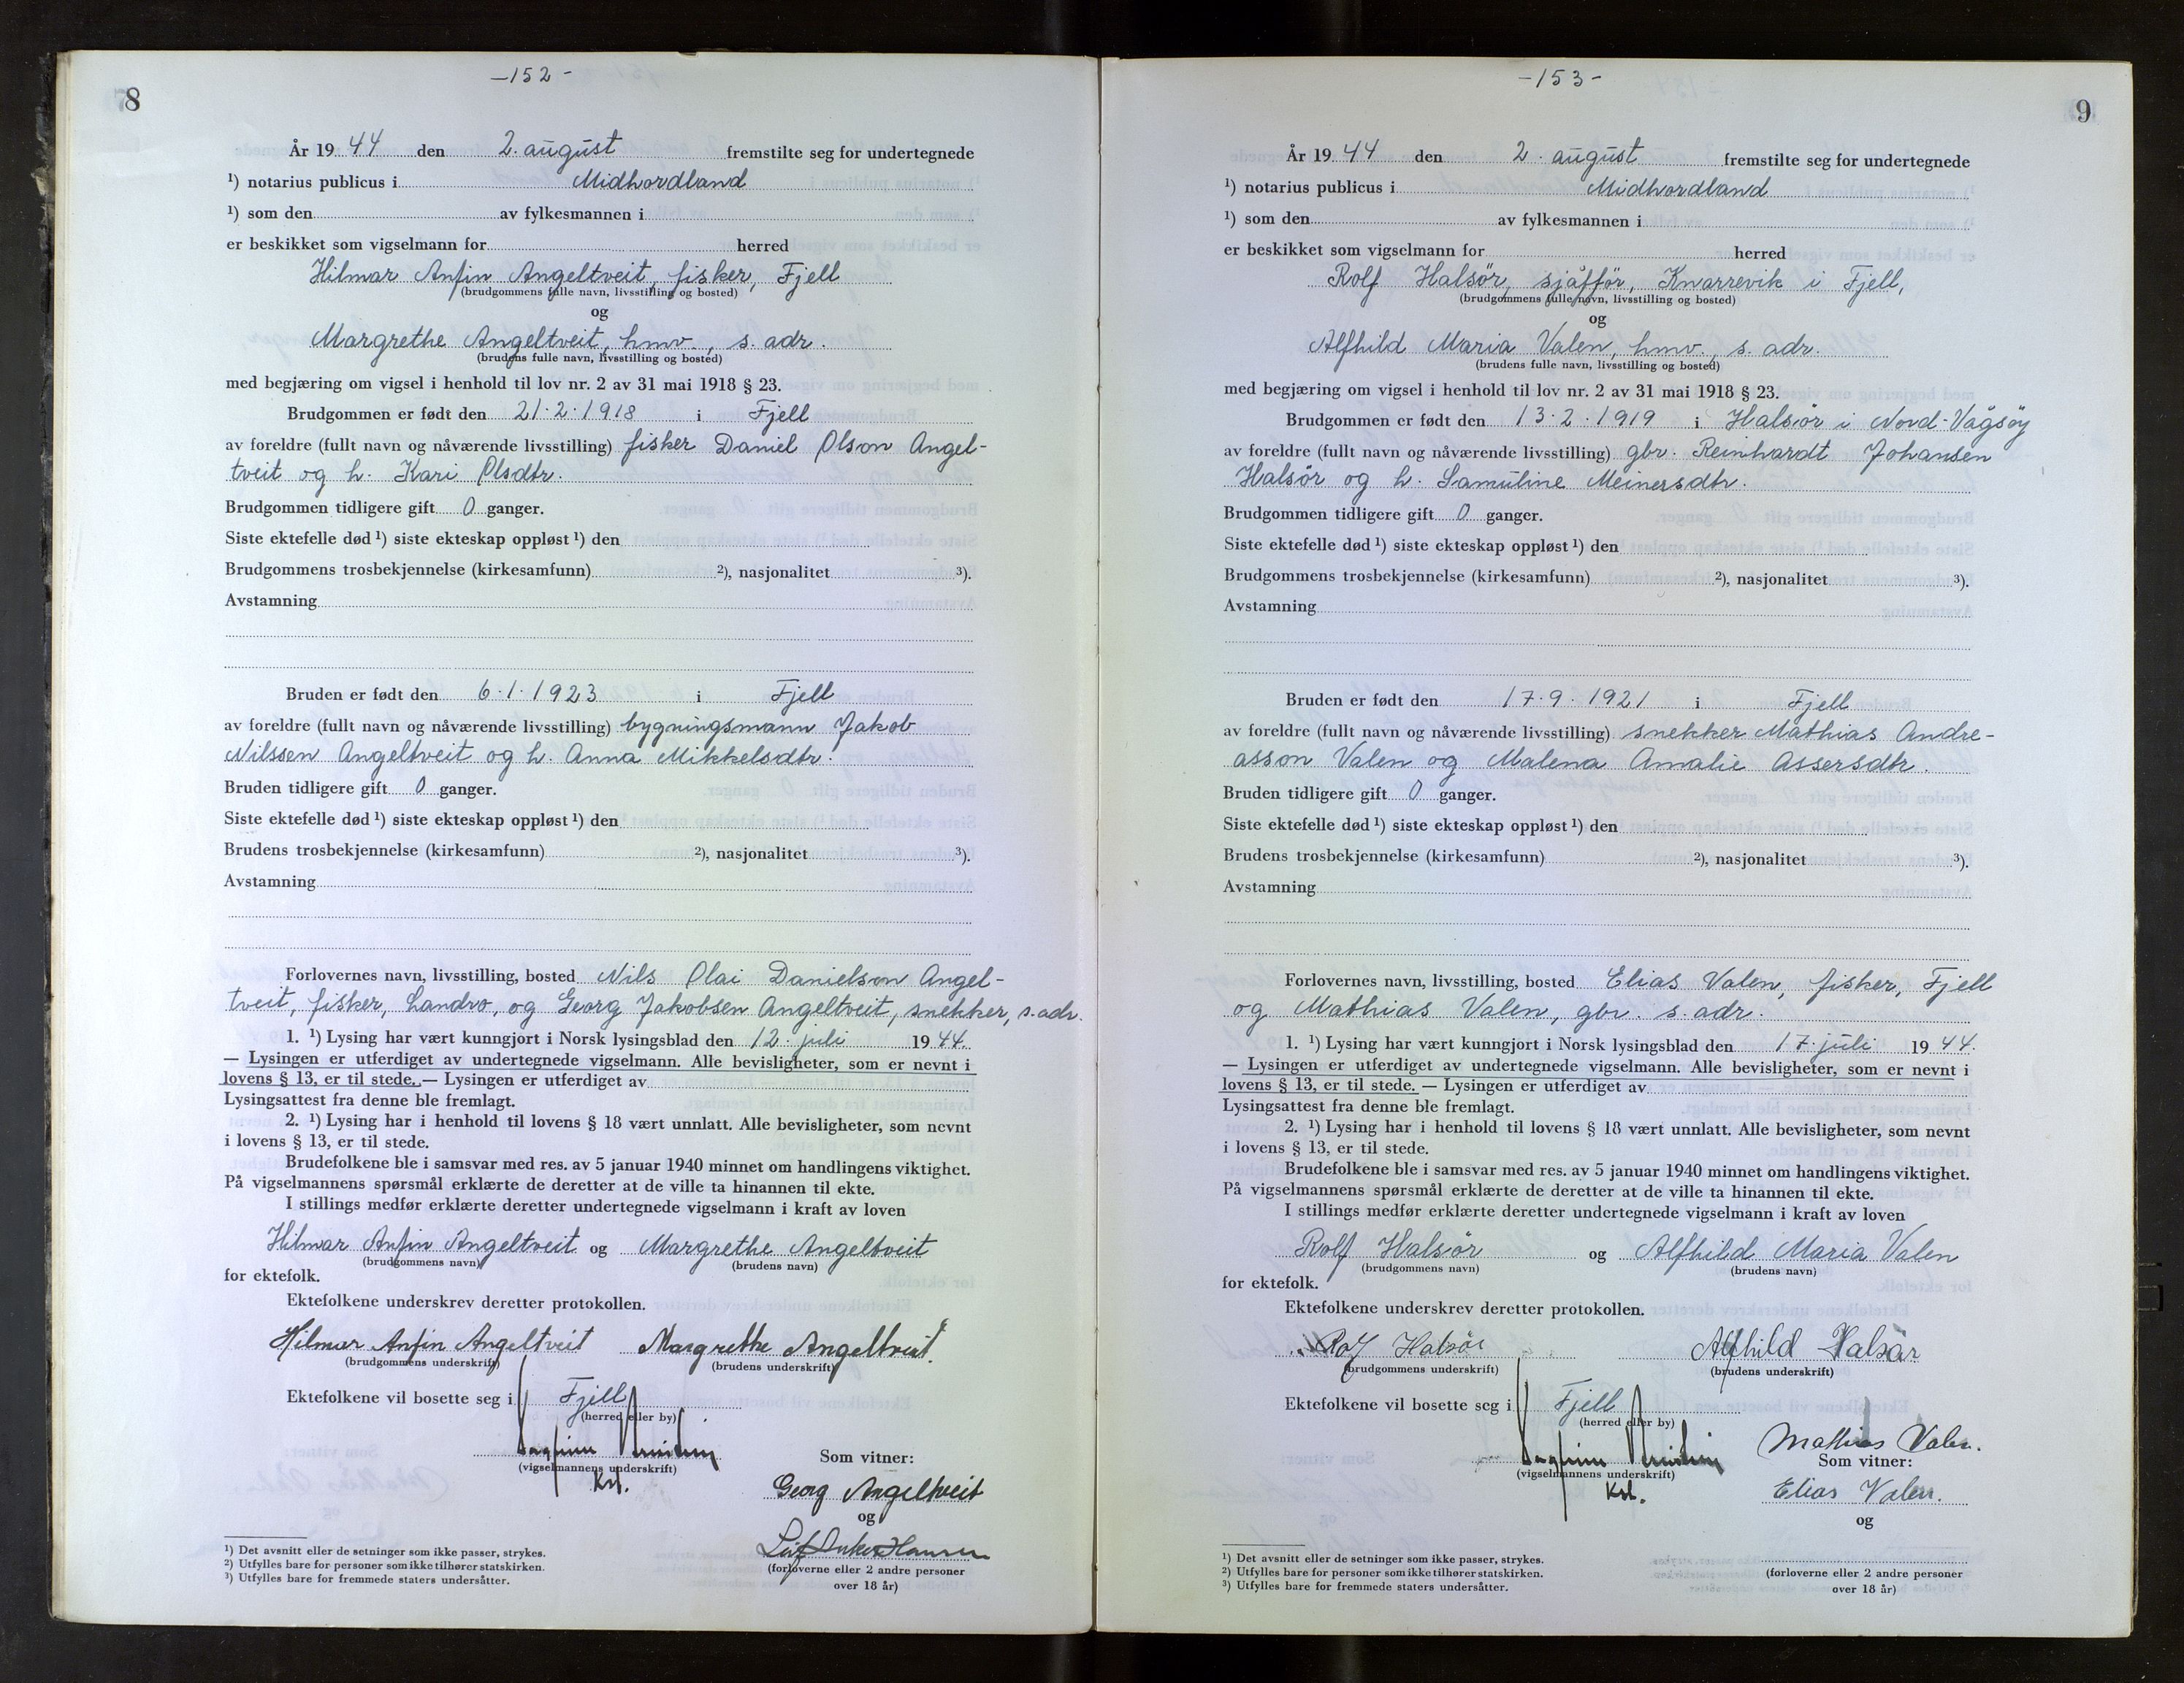 8
-152-
År 1944 den 2. august fremstilte seg for undertegnede
¹) notarius publicus i Midhordland
¹) som den av fylkesmannen i
er beskikket som vigselmann for herred
Hilmar Anfin Angeltveit, fisker, Fjell
(brudgommens fulle navn, livsstilling og bosted)
og
Margrethe Angeltveit, hmv., s. adr.
(brudens fulle navn, livsstilling og bosted)
med begjæring om vigsel i henhold til lov nr. 2 av 31 mai 1918 § 23.
Brudgommen er født den 21.2.1918 i Fjell
av foreldre (fullt navn og nåværende livsstilling) fisker Daniel Olson Angel-
tveit og h. Kari Olsdtr.
Brudgommen tidligere gift 0 ganger.
Siste ektefelle død ¹) siste ekteskap oppløst ¹) den
Brudgommens trosbekjennelse (kirkesamfunn) ²), nasjonalitet ³).
Avstamning
Bruden er født den 6.1.1923 i Fjell
av foreldre (fullt navn og nåværende livsstilling) bygningsmann Jakob
Nilssen Angeltveit og h. Anna Mikkelsdtr.
Bruden tidligere gift 0 ganger.
Siste ektefelle død ¹) siste ekteskap oppløst ¹) den
Brudens trosbekjennelse (kirkesamfunn) ²), nasjonalitet ³).
Avstamning
Forlovernes navn, livsstilling, bosted Nils Olai Danielson Angel-
tveit, fisker, Landro, og Georg Jakobsen Angeltveit, snekker, s. adr.
1. ¹) Lysing har vært kunngjort i Norsk lysingsblad den 12. juli 1944.
— Lysingen er utferdiget av undertegnede vigselmann. Alle bevisligheter, som er nevnt i
lovens § 13, er til stede. — Lysingen er utferdiget av
Lysingsattest fra denne ble fremlagt.
2. ¹) Lysing har i henhold til lovens § 18 vært unnlatt. Alle bevisligheter, som nevnt
i lovens § 13, er til stede.
Brudefolkene ble i samsvar med res. av 5 januar 1940 minnet om handlingens viktighet.
På vigselmannens spørsmål erklærte de deretter at de ville ta hinannen til ekte.
I stillings medfør erklærte deretter undertegnede vigselmann i kraft av loven
Hilmar Anfin Angeltveit og Margrethe Angeltveit
(brudgommens navn) (brudens navn)
for ektefolk.
Ektefolkene underskrev deretter protokollen.
Hilmar Anfin Angeltveit Margrethe Angeltveit.
(brudgommens underskrift) (brudens underskrift)
Ektefolkene vil bosette seg i Fjell
(herred eller by)
(vigselmannens underskrift)
Kst.
Som vitner:
Georg Angeltveit
og
Leif Anker Hansen
(forloverne eller 2 andre personer
over 18 år)
¹) Det avsnitt eller de setninger som ikke passer, strykes.
²) Utfylles bare for personer som ikke tilhører statskirken.
³) Utfylles bare for fremmede staters undersåtter.
9
-153-
År 1944 den 2. august fremstilte seg for undertegnede
¹) notarius publicus i Midhordland
¹) som den av fylkesmannen i
er beskikket som vigselmann for herred
Rolf Halsör, sjåfför, Knarrevik i Fjell,
(brudgommens fulle navn, livsstilling og bosted)
og
Alfhild Maria Valen, hmv., s. adr.
(brudens fulle navn, livsstilling og bosted)
med begjæring om vigsel i henhold til lov nr. 2 av 31 mai 1918 § 23.
Brudgommen er født den 13.2.1919 i Halsör i Nord-Vågsöy
av foreldre (fullt navn og nåværende livsstilling) gbr. Reinhardt Johansen
Halsör og h. Samuline Meinersdtr.
Brudgommen tidligere gift 0 ganger.
Siste ektefelle død ¹) siste ekteskap oppløst ¹) den
Brudgommens trosbekjennelse (kirkesamfunn) ²), nasjonalitet ³).
Avstamning
Bruden er født den 17.9.1921 i Fjell
av foreldre (fullt navn og nåværende livsstilling) snekker Mathias Andre-
asson Valen og Malena Amalie Assersdtr.
Bruden tidligere gift 0 ganger.
Siste ektefelle død ¹) siste ekteskap oppløst ¹) den
Brudens trosbekjennelse (kirkesamfunn) ²), nasjonalitet ³).
Avstamning
Forlovernes navn, livsstilling, bosted Elias Valen, fisker, Fjell
og Mathias Valen, gbr. s. adr.
1. ¹) Lysing har vært kunngjort i Norsk lysingsblad den 17. juli 1944.
— Lysingen er utferdiget av undertegnede vigselmann. Alle bevisligheter, som er nevnt i
lovens § 13, er til stede. — Lysingen er utferdiget av
Lysingsattest fra denne ble fremlagt.
2. ¹) Lysing har i henhold til lovens § 18 vært unnlatt. Alle bevisligheter, som nevnt
i lovens § 13, er til stede.
Brudefolkene ble i samsvar med res. av 5 januar 1940 minnet om handlingens viktighet.
På vigselmannens spørsmål erklærte de deretter at de ville ta hinannen til ekte.
I stillings medfør erklærte deretter undertegnede vigselmann i kraft av loven
Rolf Halsör og Alfhild Maria Valen
(brudgommens navn) (brudens navn)
for ektefolk.
Ektefolkene underskrev deretter protokollen.
Rolf Halsör Alfhild Halsör
(brudgommens underskrift) (brudens underskrift)
Ektefolkene vil bosette seg i Fjell
(herred eller by)
(vigselmannens underskrift)
Kst.
Mathias Valen.
Som vitner:
Elias Valen.
og
(forloverne eller 2 andre personer
over 18 år)
¹) Det avsnitt eller de setninger som ikke passer, strykes.
²) Utfylles bare for personer som ikke tilhører statskirken.
³) Utfylles bare for fremmede staters undersåtter.